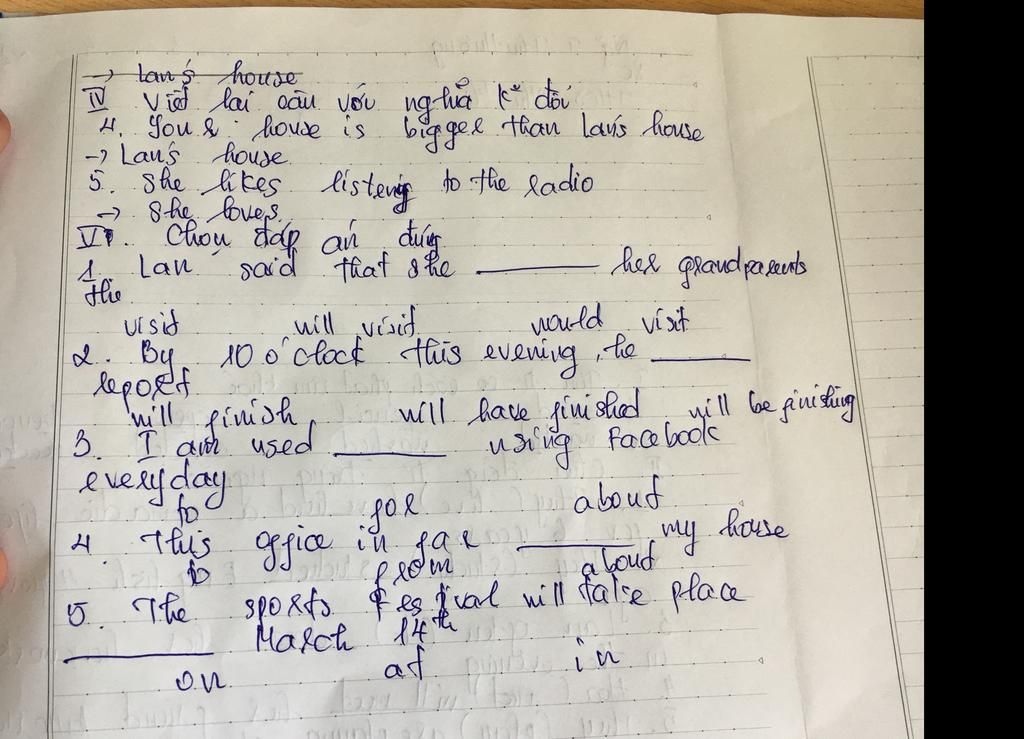 → Lan's house
IV Viết lại câu với nghĩa k° đổi
4. Your house is bigger than Lan's house
→ Lan's house
5. She likes listening to the radio
→ She loves
V. Chọn đáp án đúng
1. Lan said that she ______ her grandparents
the
visit will visit would visit
2. By 10 o'clock this evening, he ______
report
will finish will have finished will be finishing
3. I am used ______ using Facebook
everyday
to for about
4. This office in far ______ my house
to from about
5. The sports festival will take place
______ March 14th
on at in